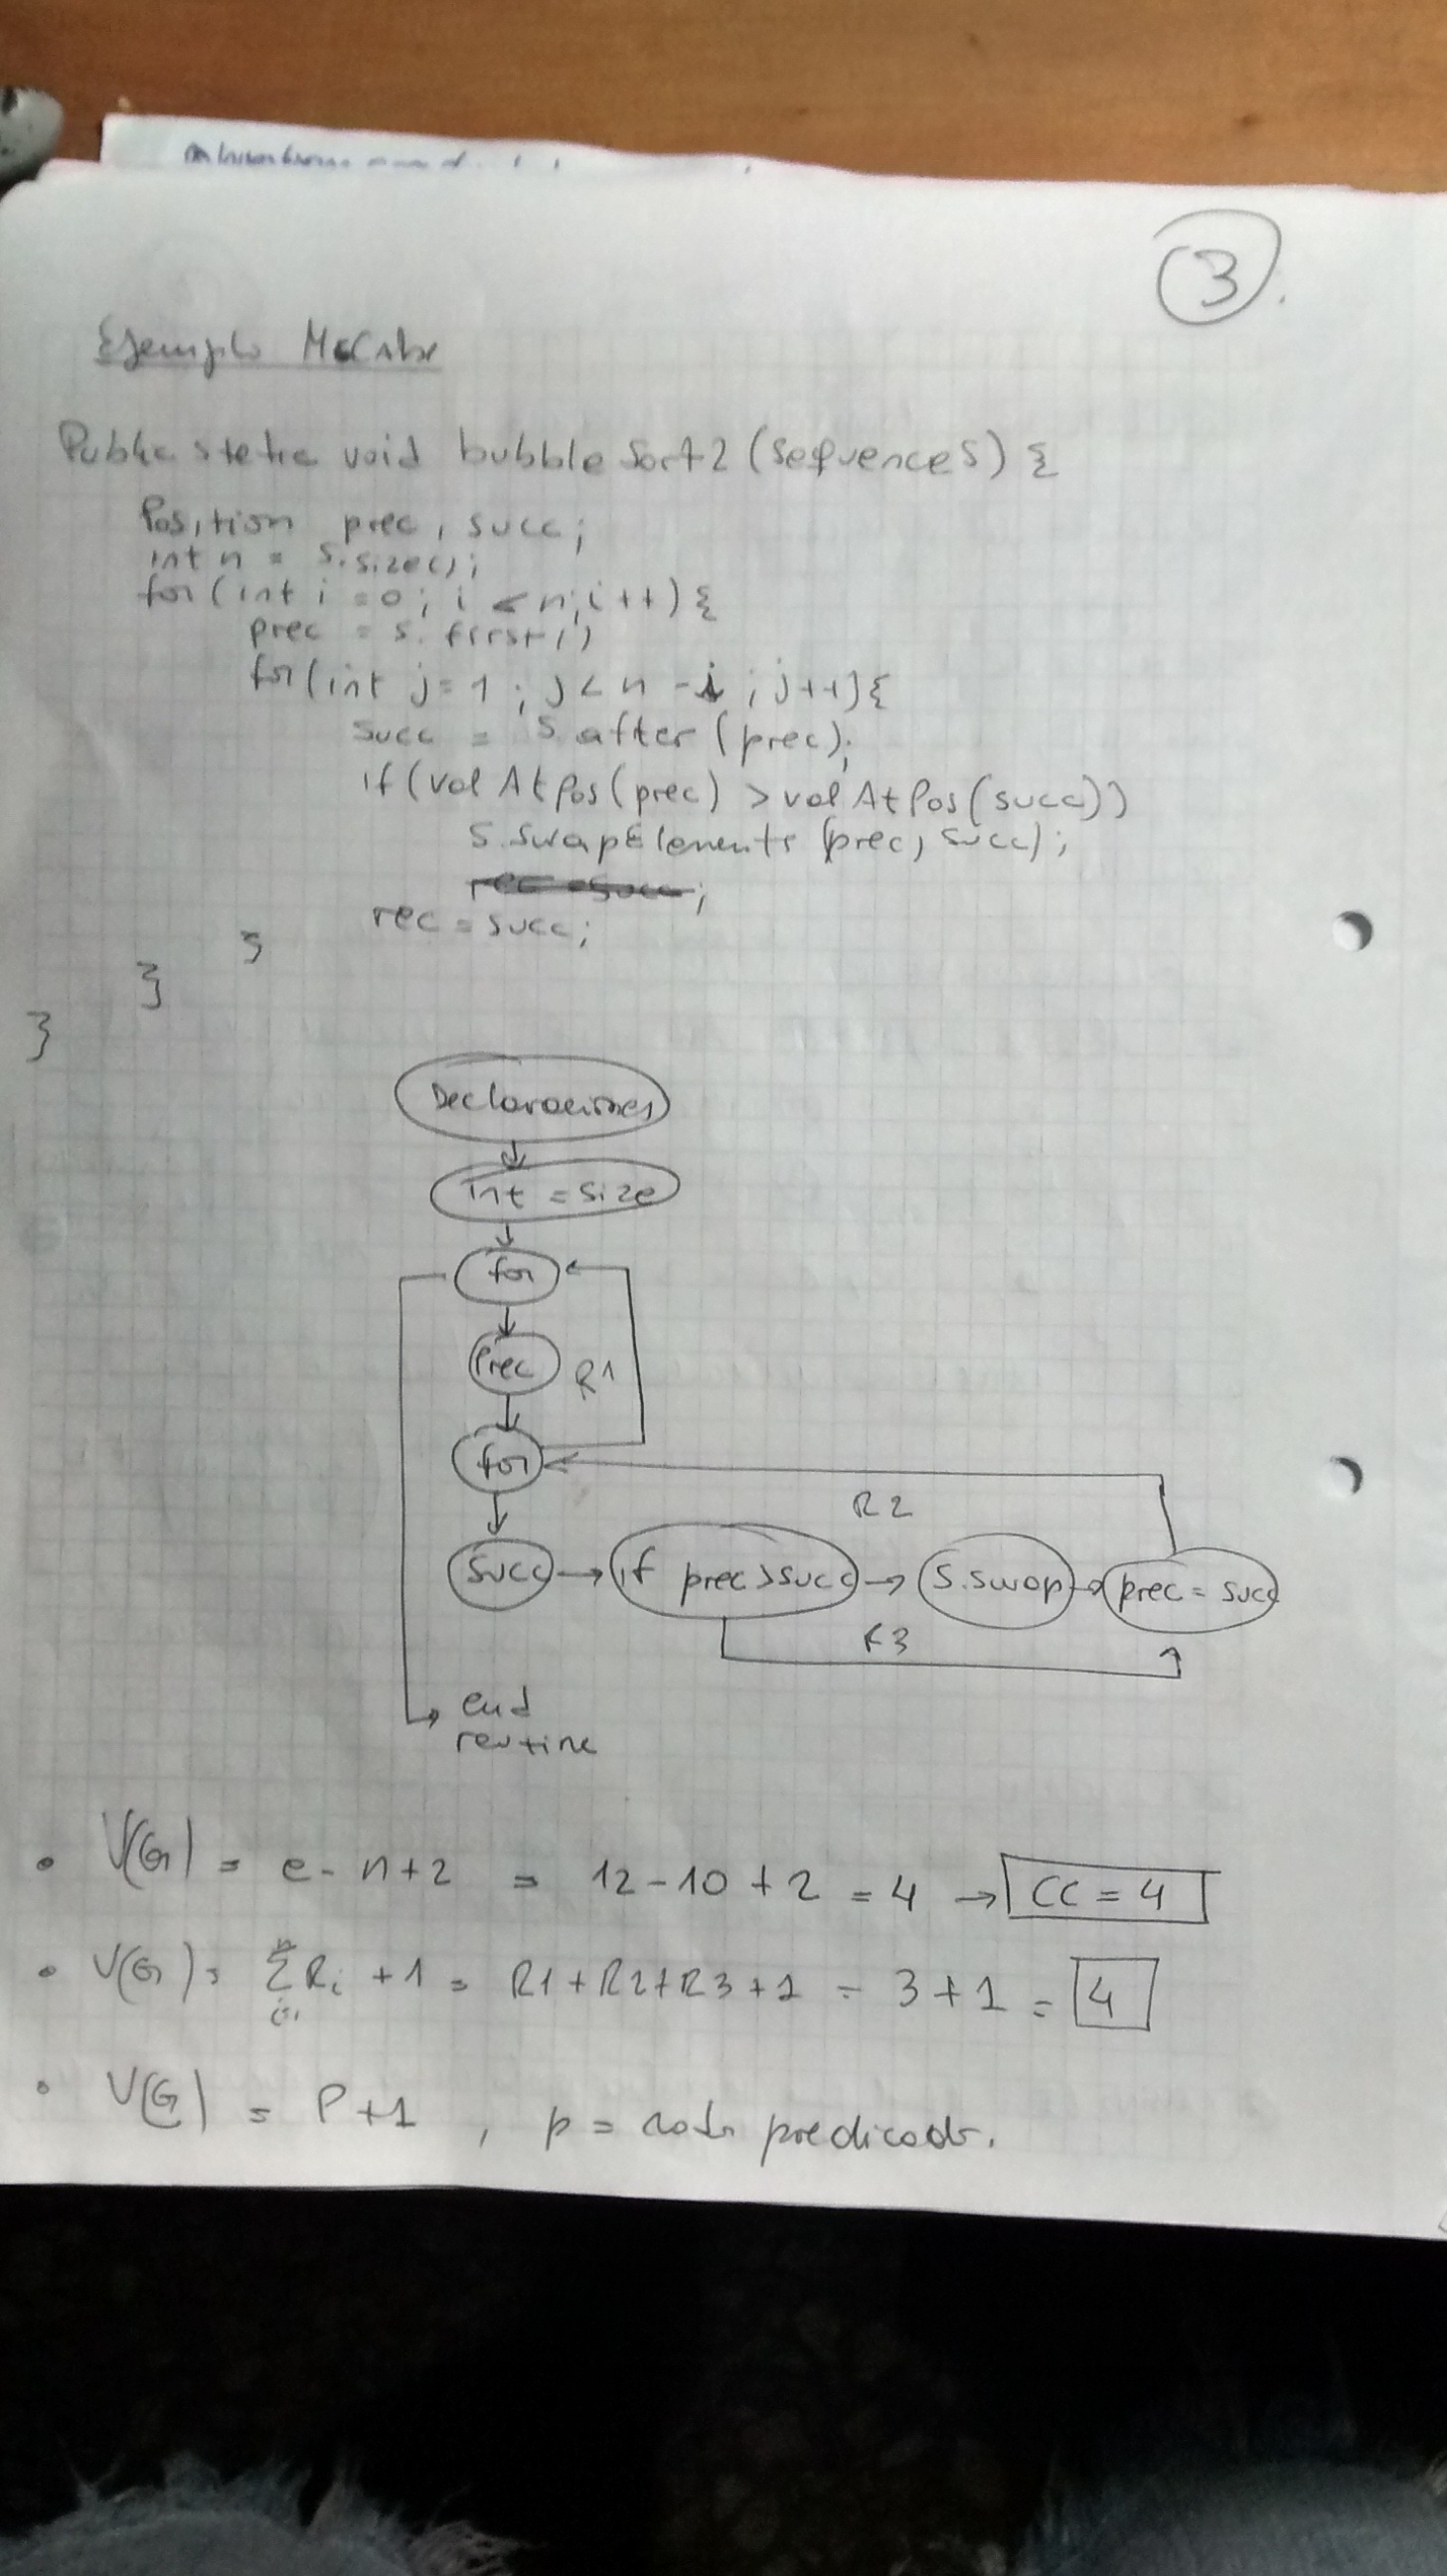 3
Ejemplo McCabe
Public static void bubbleSort2 (Sequence S) {
Position prec, succ;
int n = S.size();
for (int i = 0; i < n; i++) {
prec = S.first()
for (int j = 1; j < n - i; j++) {
succ = S.after (prec);
if (valAtPos(prec) > valAtPos(succ))
S.swapElements (prec, succ);
rec = succ;
}
}
}
Declaraciones
int = size
for
Prec
R1
for
R2
Succ
if prec > succ
S.swap
prec = succ
R3
end
routine
• V(G) = e - n + 2 = 12 - 10 + 2 = 4 → CC = 4
• V(G) = Σ Ri + 1 = R1 + R2 + R3 + 1 = 3 + 1 = 4
• V(G) = P + 1, p = nodo predicado.